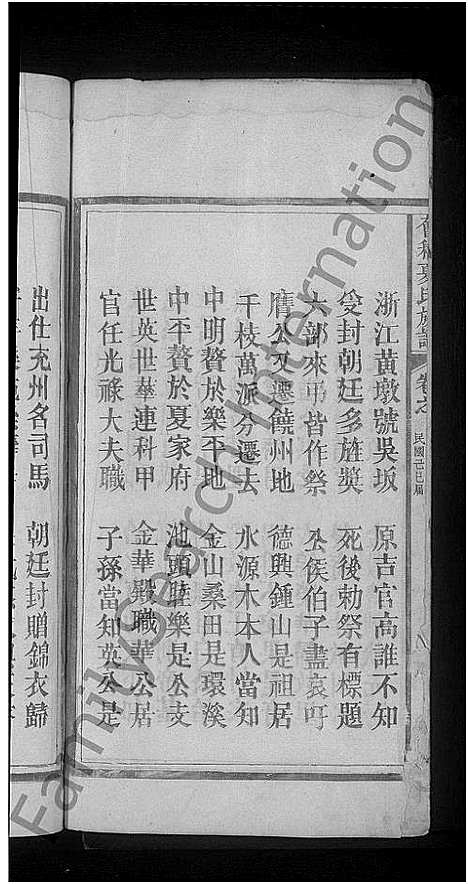 會稽夏氏族譜 卷之 民國己巳屆
浙江黃墩號吳坂 原吉官高誰不知
受封朝廷多旌獎 死後勅祭有標題
六部來弔皆作祭 公侯伯子盡哀吁
膺公又遷饒州地 德興鍾山是祖居
千枝萬派分遷去 水源木本人當知
中明贅於樂平地 金山桑田是環溪
中平贅於夏家府 池頭睦樂是公支
世英世華連科甲 金華殿職華公居
官任光祿大夫職 子孫當知英公是
出仕兗州名司馬 朝廷封贈錦衣歸
FamilySearch International